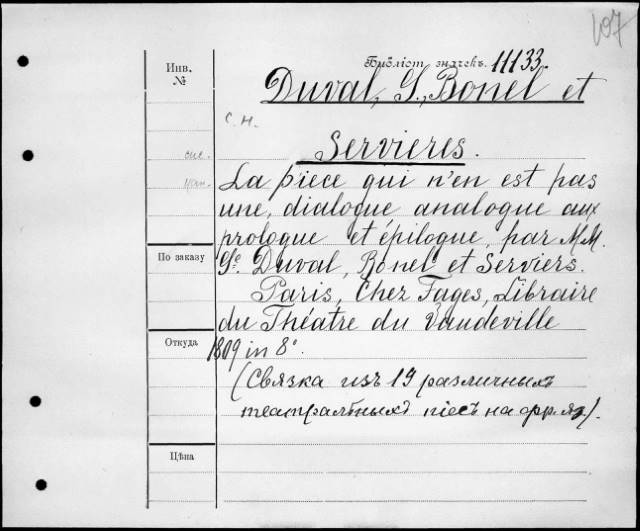 107
Инв.
№
Библіот. значекъ. 11133.
Duval, G., Bonel et
с. н.
Servieres.
La piece qui n'en est pas
une, dialogue analogue aux
prologue et épilogue, par M.M.
Ge Duval, Bonel et Serviers.
По заказу
Paris, Chez Fages, Libraire
du Théatre du Vaudeville
Откуда
1809 in 8°.
(Связка изъ 19 различныхъ
театральныхъ піес на фр. яз.).
Цѣна